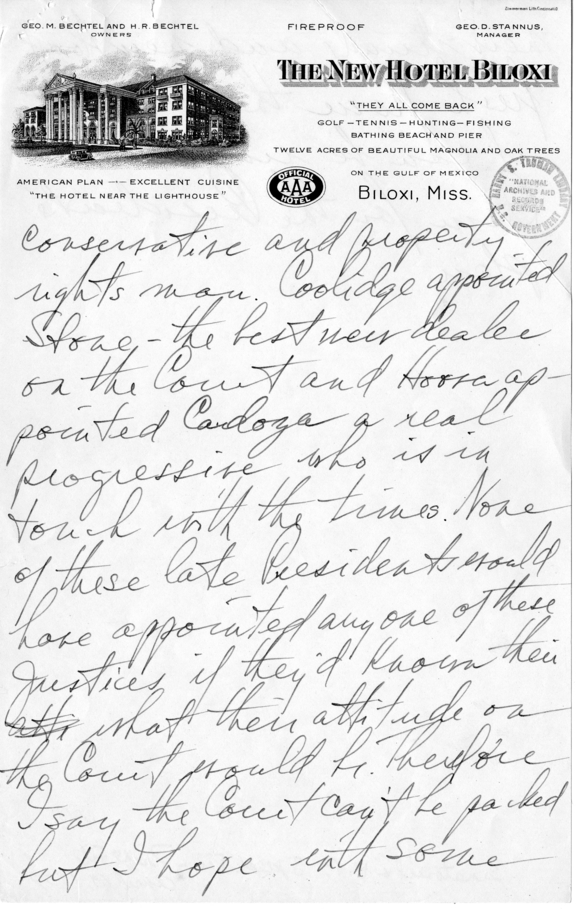 GEO. M. BECHTEL AND H. R. BECHTEL
OWNERS
FIREPROOF
GEO. D. STANNUS,
MANAGER
THE NEW HOTEL BILOXI
"THEY ALL COME BACK"
GOLF – TENNIS – HUNTING – FISHING
BATHING BEACH AND PIER
TWELVE ACRES OF BEAUTIFUL MAGNOLIA AND OAK TREES
OFFICIAL
AAA
HOTEL
ON THE GULF OF MEXICO
BILOXI, MISS.
AMERICAN PLAN –·– EXCELLENT CUISINE
"THE HOTEL NEAR THE LIGHTHOUSE"
HARRY S. TRUMAN LIBRARY
"NATIONAL
ARCHIVES AND
RECORDS
SERVICE"
U.S. GOVERNMENT
conservative and property
rights man. Coolidge appointed
Stone – the best new dealer
on the Court and Hoover ap-
pointed Cardoza a real
progressive who is in
touch with the times. None
of these late Presidents would
have appointed anyone of these
Justices if they'd known their
what their attitude on
the Court would be. Therefore
I say the Court can't be packed
but I hope with some